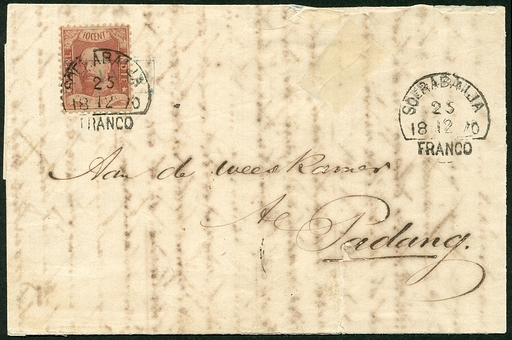 10 CENT
SOERABAIJA
25
18 12 70
FRANCO
SOERABAIJA
25
18 12 70
FRANCO
Aan de weeskamer
te
Padang.